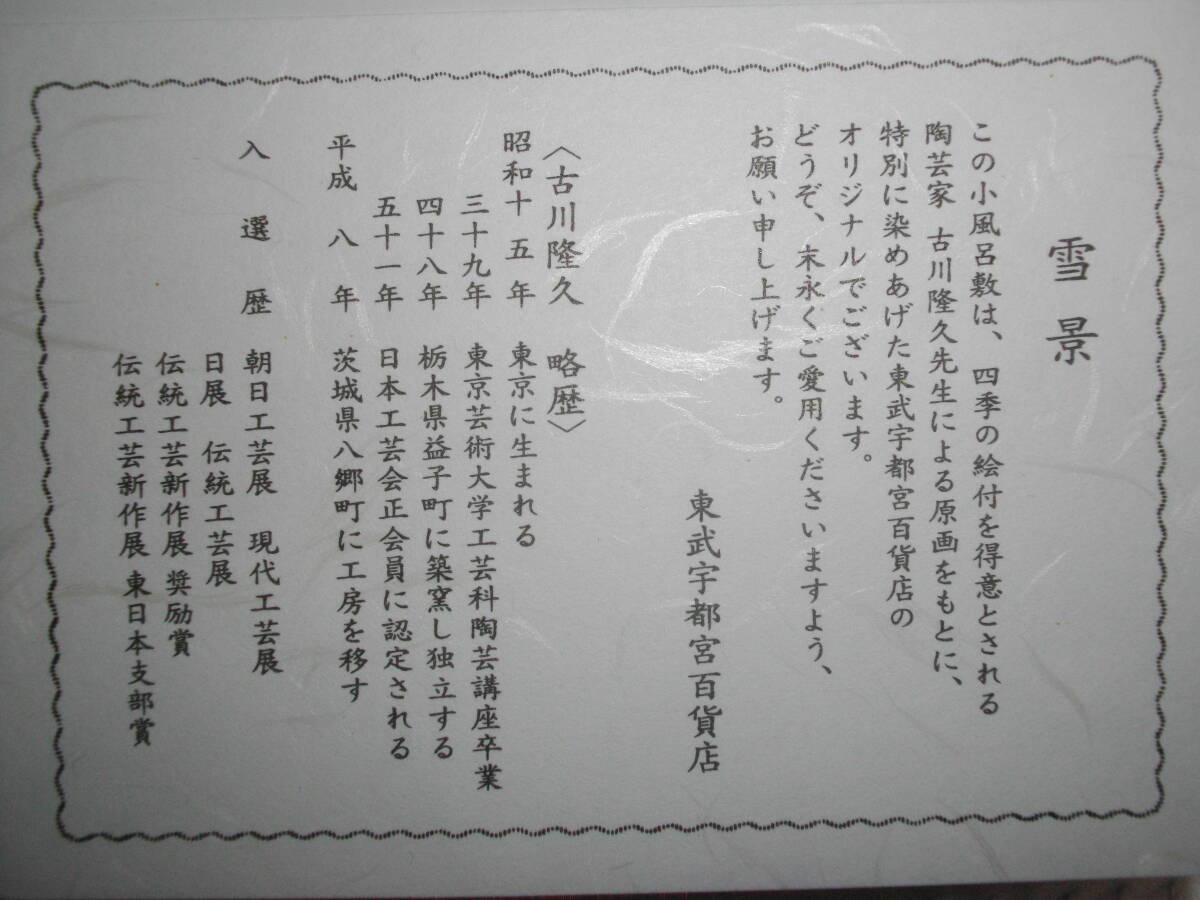 雪景
この小風呂敷は、四季の絵付を得意とされる
陶芸家 古川隆久先生による原画をもとに、
特別に染めあげた東武宇都宮百貨店の
オリジナルでございます。
どうぞ、末永くご愛用くださいますよう、
お願い申し上げます。
東武宇都宮百貨店
〈古川隆久 略歴〉
昭和十五年 東京に生まれる
三十九年 東京芸術大学工芸科陶芸講座卒業
四十八年 栃木県益子町に築窯し独立する
五十一年 日本工芸会正会員に認定される
平成八年 茨城県八郷町に工房を移す
入選歴 朝日工芸展 現代工芸展
日展 伝統工芸展
伝統工芸新作展 奨励賞
伝統工芸新作展 東日本支部賞